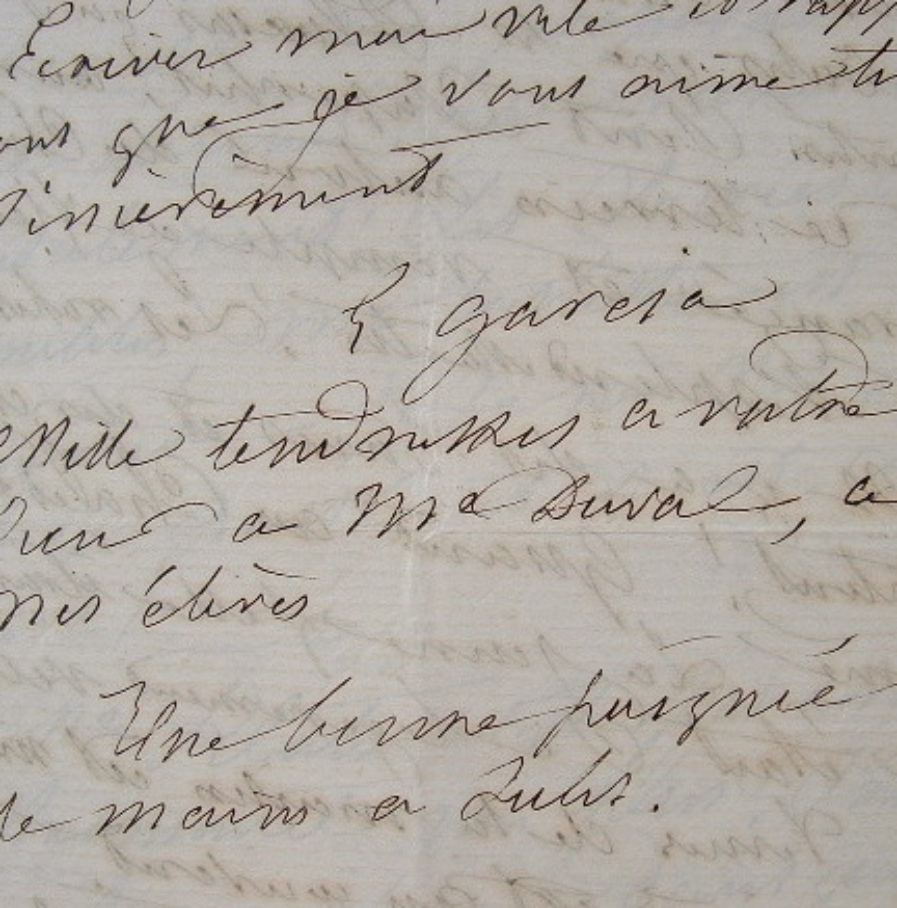 Ecrivez moi vite et rapp
vous que je vous aime tr
sincèrement
E garcia
Mille tendresses a votre
a Me Duval, a
mes élèves
Une bonne poignée
de mains a Jules.